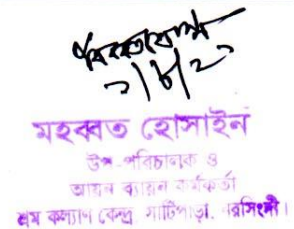 ২/৮/২০
মহব্বত হোসাইন
উপ-পরিচালক ও
আয়ন ব্যয়ন কর্মকর্তা
শ্রম কল্যাণ কেন্দ্র, নরসিংদী।